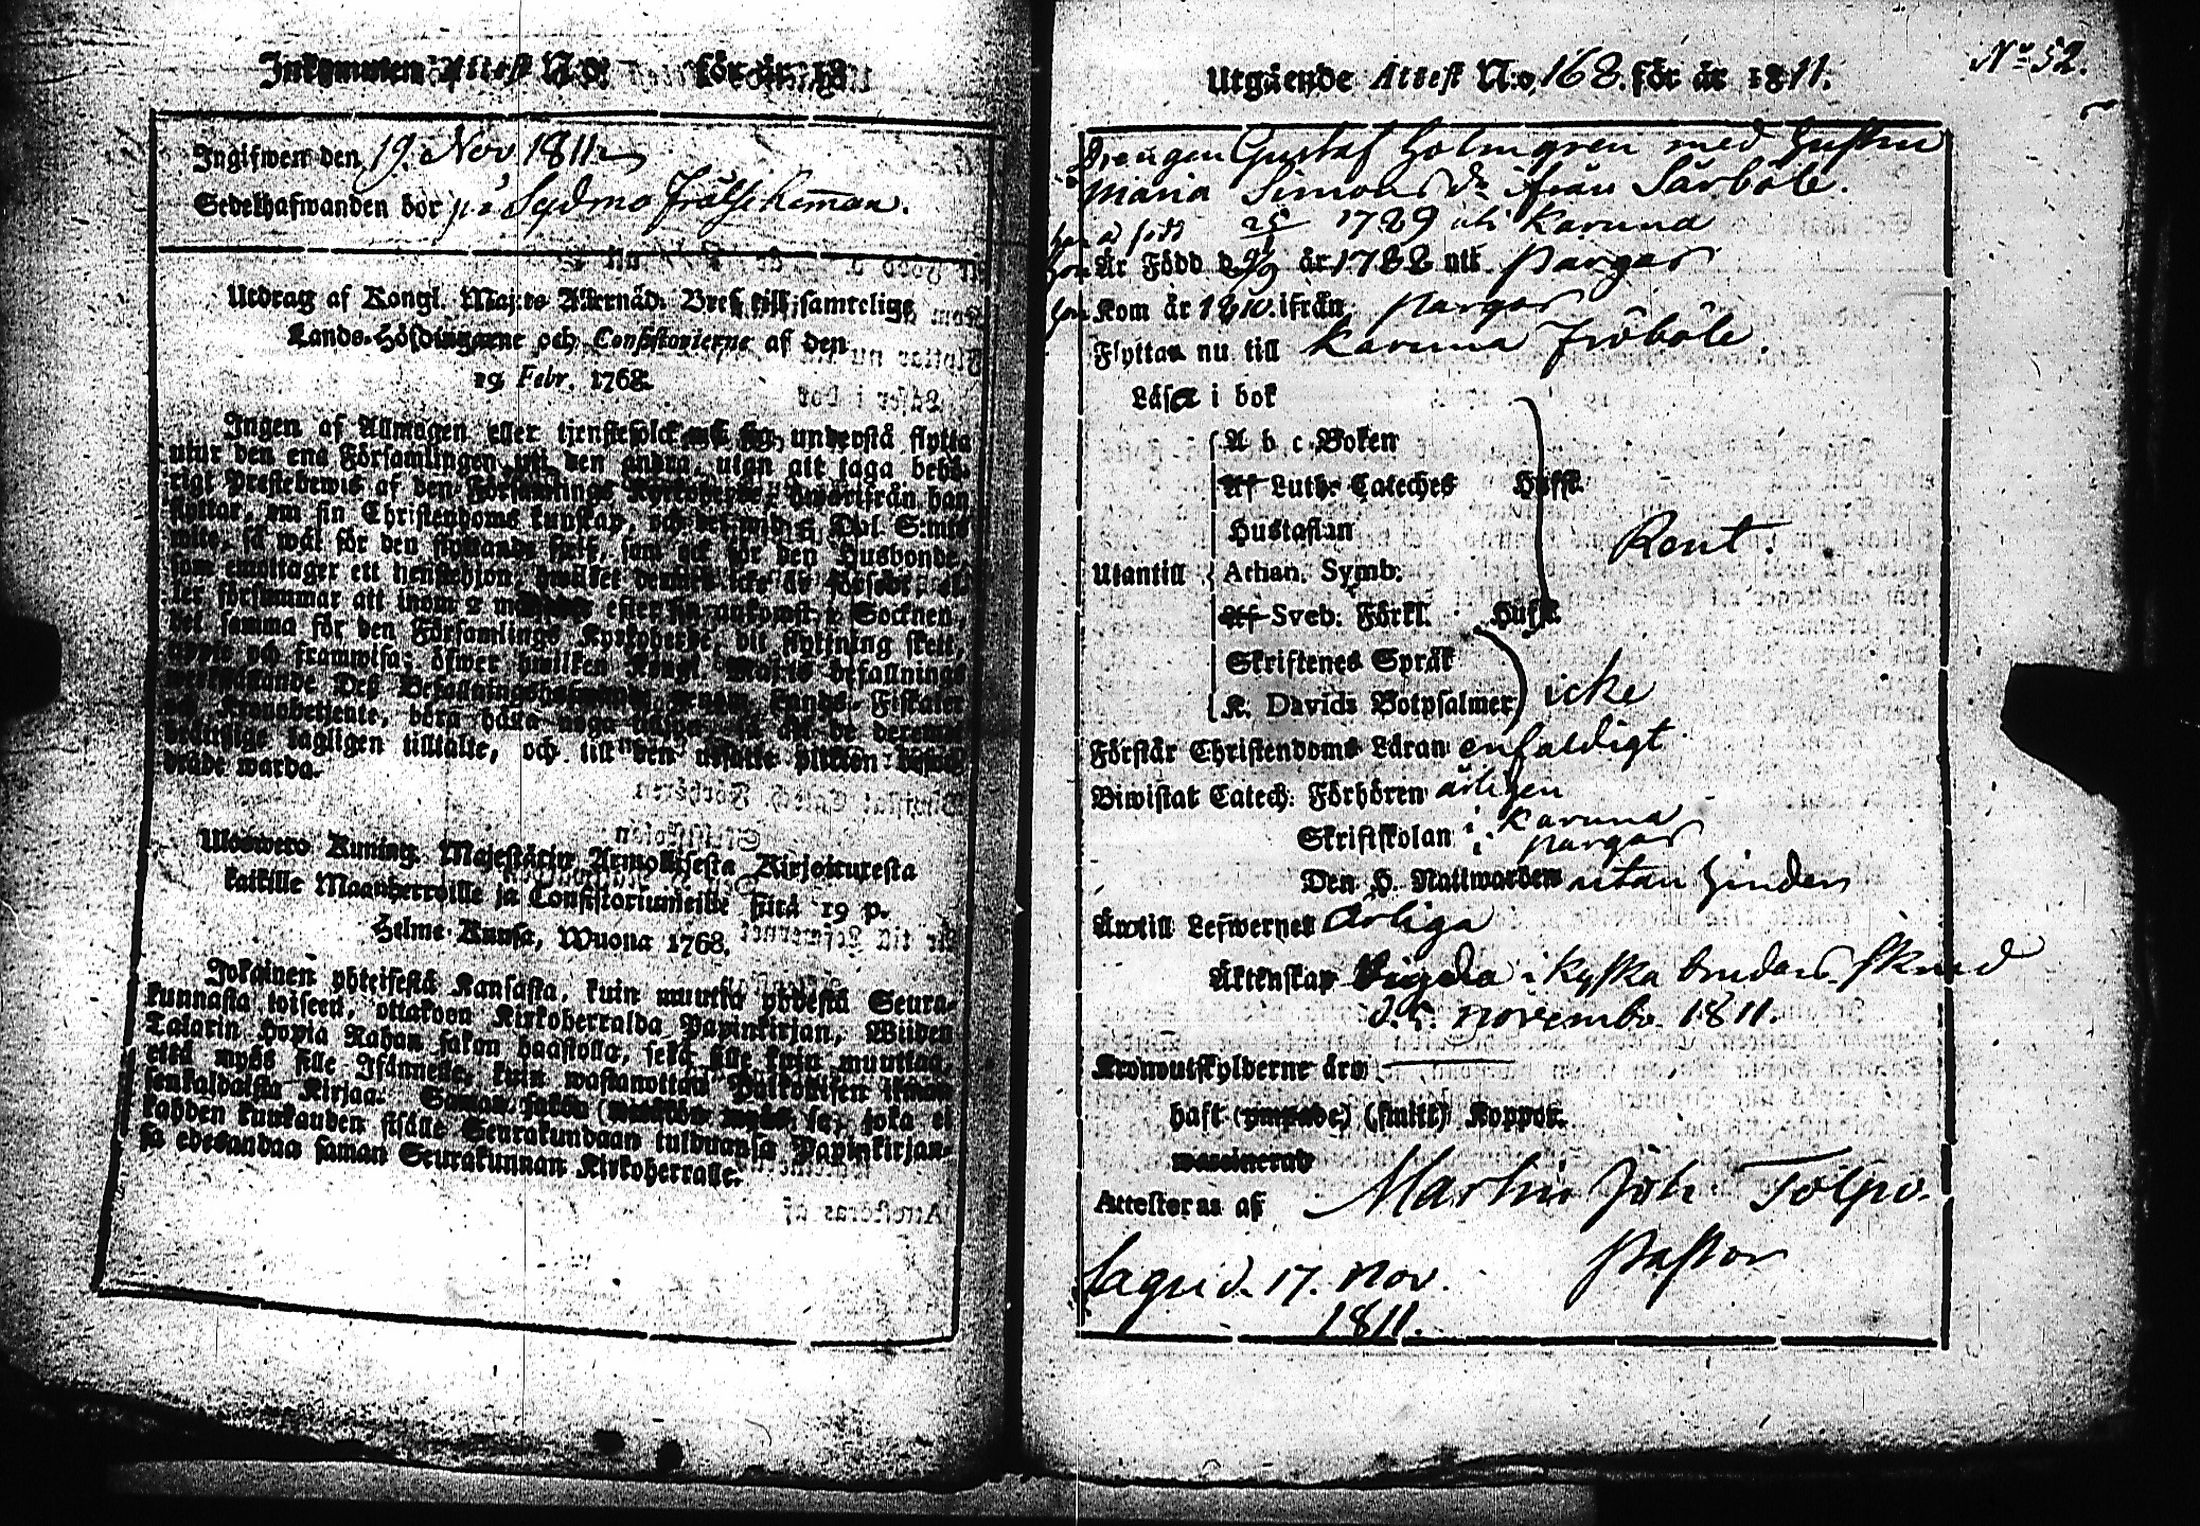 Inkommen Attest N:o för år 18
Ingifwen den 19. Nov 1811
Sedelhafwanden bor på Sydmo
Utdrag af Kongl. Maj:ts Allernåd. Bref till samtelige
Lands-Höfdingarne och Consistorierne af den
19 Febr. 1768.
Ingen af Allmogen eller tjenstefolck må sig understå flytta
utur den ena Församlingen uti den andra, utan att taga behö-
rigt Prestebewis af den Församlings Kyrkoherde, hwarifrån han
flyttar, om sin Christendoms kunskap, och det wid 5 Dal. S:mts
wite, så wäl för den flyttande sielf, som ock för den Husbonde,
som emottager ett tjenstehjon, hwilket
ler försummar att inom 2 efter sin ankomst i Socknen,
det samma för den Församlings Kyrkoherde, dit flyttning skett,
uppte och framwisa; öfwer hwilken Kongl. Maj:ts befallnings
werkställande Des Lands-Fiskaler
och Kronobetjente, böra hålla noga så att de deremot
brottslige lagligen tilltalte, och till den utsatte plikten
dråde warda.
Uloswero Kuning. Majestätin Armollisesta Kirjoituxesta
kaikille Maanherroille ja Consistoriumeille siitä 19 p.
Helme-Kuusa, Wuona 1768.
Jokainen yhteisestä Kansasta, kuin muutta yhdestä Seura-
kunnasta toiseen, ottakoon Kirkoherralda Papinkirjan, Wiiden
Talarin Hopia Rahan sakon haastolla, sekä sille kuin muuttaa,
että myös sille Isännelle, kuin wastanottaa Palkollisen ilman
senkaldaista Kirjaa. Saman sakon se, joka ei
kahden kuukauden sisälle Seurakundaan tulduansa Papinkirjan-
sa edesanna saman Seurakunnan Kirkoherralle.
N:o 52.
Utgående Attest N:o 168. för år 1811.
Drengen Gustaf Holmgren med Hustru
Maria Simons dr ifrån Särböle.
han är född 25 1789 uti Karuna
hon Är Född d. år 1788 uti Pargas
hon Kom år 1810. ifrån Pargas
Flyttar nu till Karuna Fröböle.
Läsa i bok
A b c Boken
Af Luth. Cateches Hufst.
Hustaflan
Utantill Athan. Symb.
Rent.
Af Sveb. Förkl. Hufst.
Skriftenes Språk
K. Davids Botpsalmer icke
Förstår Christendoms Läran enfaldigt
Biwistat Catech. Förhören årligen
Skriftskolan i Karuna
i Pargas
Den H. Nattwarden utan hinder
Äro till Lefwernet Ärliga
Äktenskap Vigda i kyska brudars skrud
d. 5. Novembr. 1811.
Kronoutskylderne äro
haft (ympade) (smitt) Koppor.
waccinerad
Attesteras af Martin Joh. Tolpo.
Pastor
Sagu d. 17. Nov.
1811.